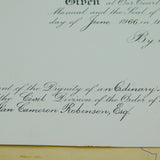 Given at Our Court
Manual and the Seal of
day of June 1966 in
By
nt of the Dignity of an Ordinary
the Civil Division of the Order of the
Ian Cameron Robinson, Esq.